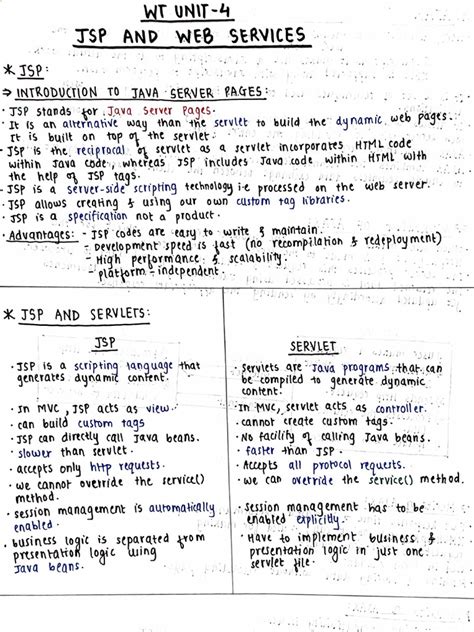 WT UNIT-4
JSP AND WEB SERVICES
* JSP:
⇒ INTRODUCTION TO JAVA SERVER PAGES:
· JSP stands for Java Server Pages.
· It is an alternative way than the servlet to build the dynamic web pages.
It is built on top of the servlet.
· JSP is the reciprocal of servlet as a servlet incorporates HTML code
within Java code, whereas JSP includes Java code within HTML with
the help of JSP tags.
· JSP is a server-side scripting technology i.e processed on the web server.
· JSP allows creating & using our own custom tag libraries.
· JSP is a specification not a product.
· Advantages: - JSP codes are easy to write & maintain.
- Development speed is fast (no recompilation & redeployment)
- High performance & scalability.
- platform-independent.
* JSP AND SERVLETS:
JSP
· JSP is a scripting language that
generates dynamic content.
· In MVC, JSP acts as view.
· can build custom tags
· JSP can directly call Java beans.
· slower than servlet.
· accepts only http requests.
· we cannot override the service()
method.
· session management is automatically
enabled.
· business logic is separated from
presentation logic using
Java beans.
SERVLET
· Servlets are Java programs that can
be compiled to generate dynamic
content.
· In MVC, servlet acts as controller.
· cannot create custom tags.
· No facility of calling Java beans.
· faster than JSP.
· Accepts all protocol requests.
· we can override the service() method.
· Session management has to be
enabled explicitly.
· Have to implement business &
presentation logic in just one
servlet file.